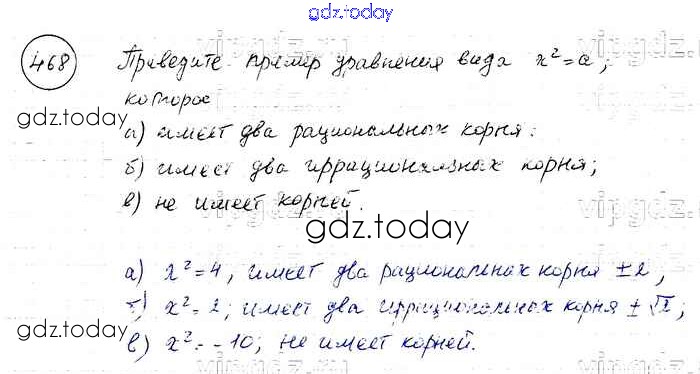 gdz.today
468 Приведите пример уравнения вида x² = a,
которое
gdz.today
а) имеет два рациональных корня:
б) имеет два иррациональных корня;
в) не имеет корней.
gdz.today
а) x² = 4, имеет два рациональных корня ± 2,
б) x² = 2; имеет два иррациональных корня ± √2;
gdz.today
в) x² = - 10; не имеет корней.